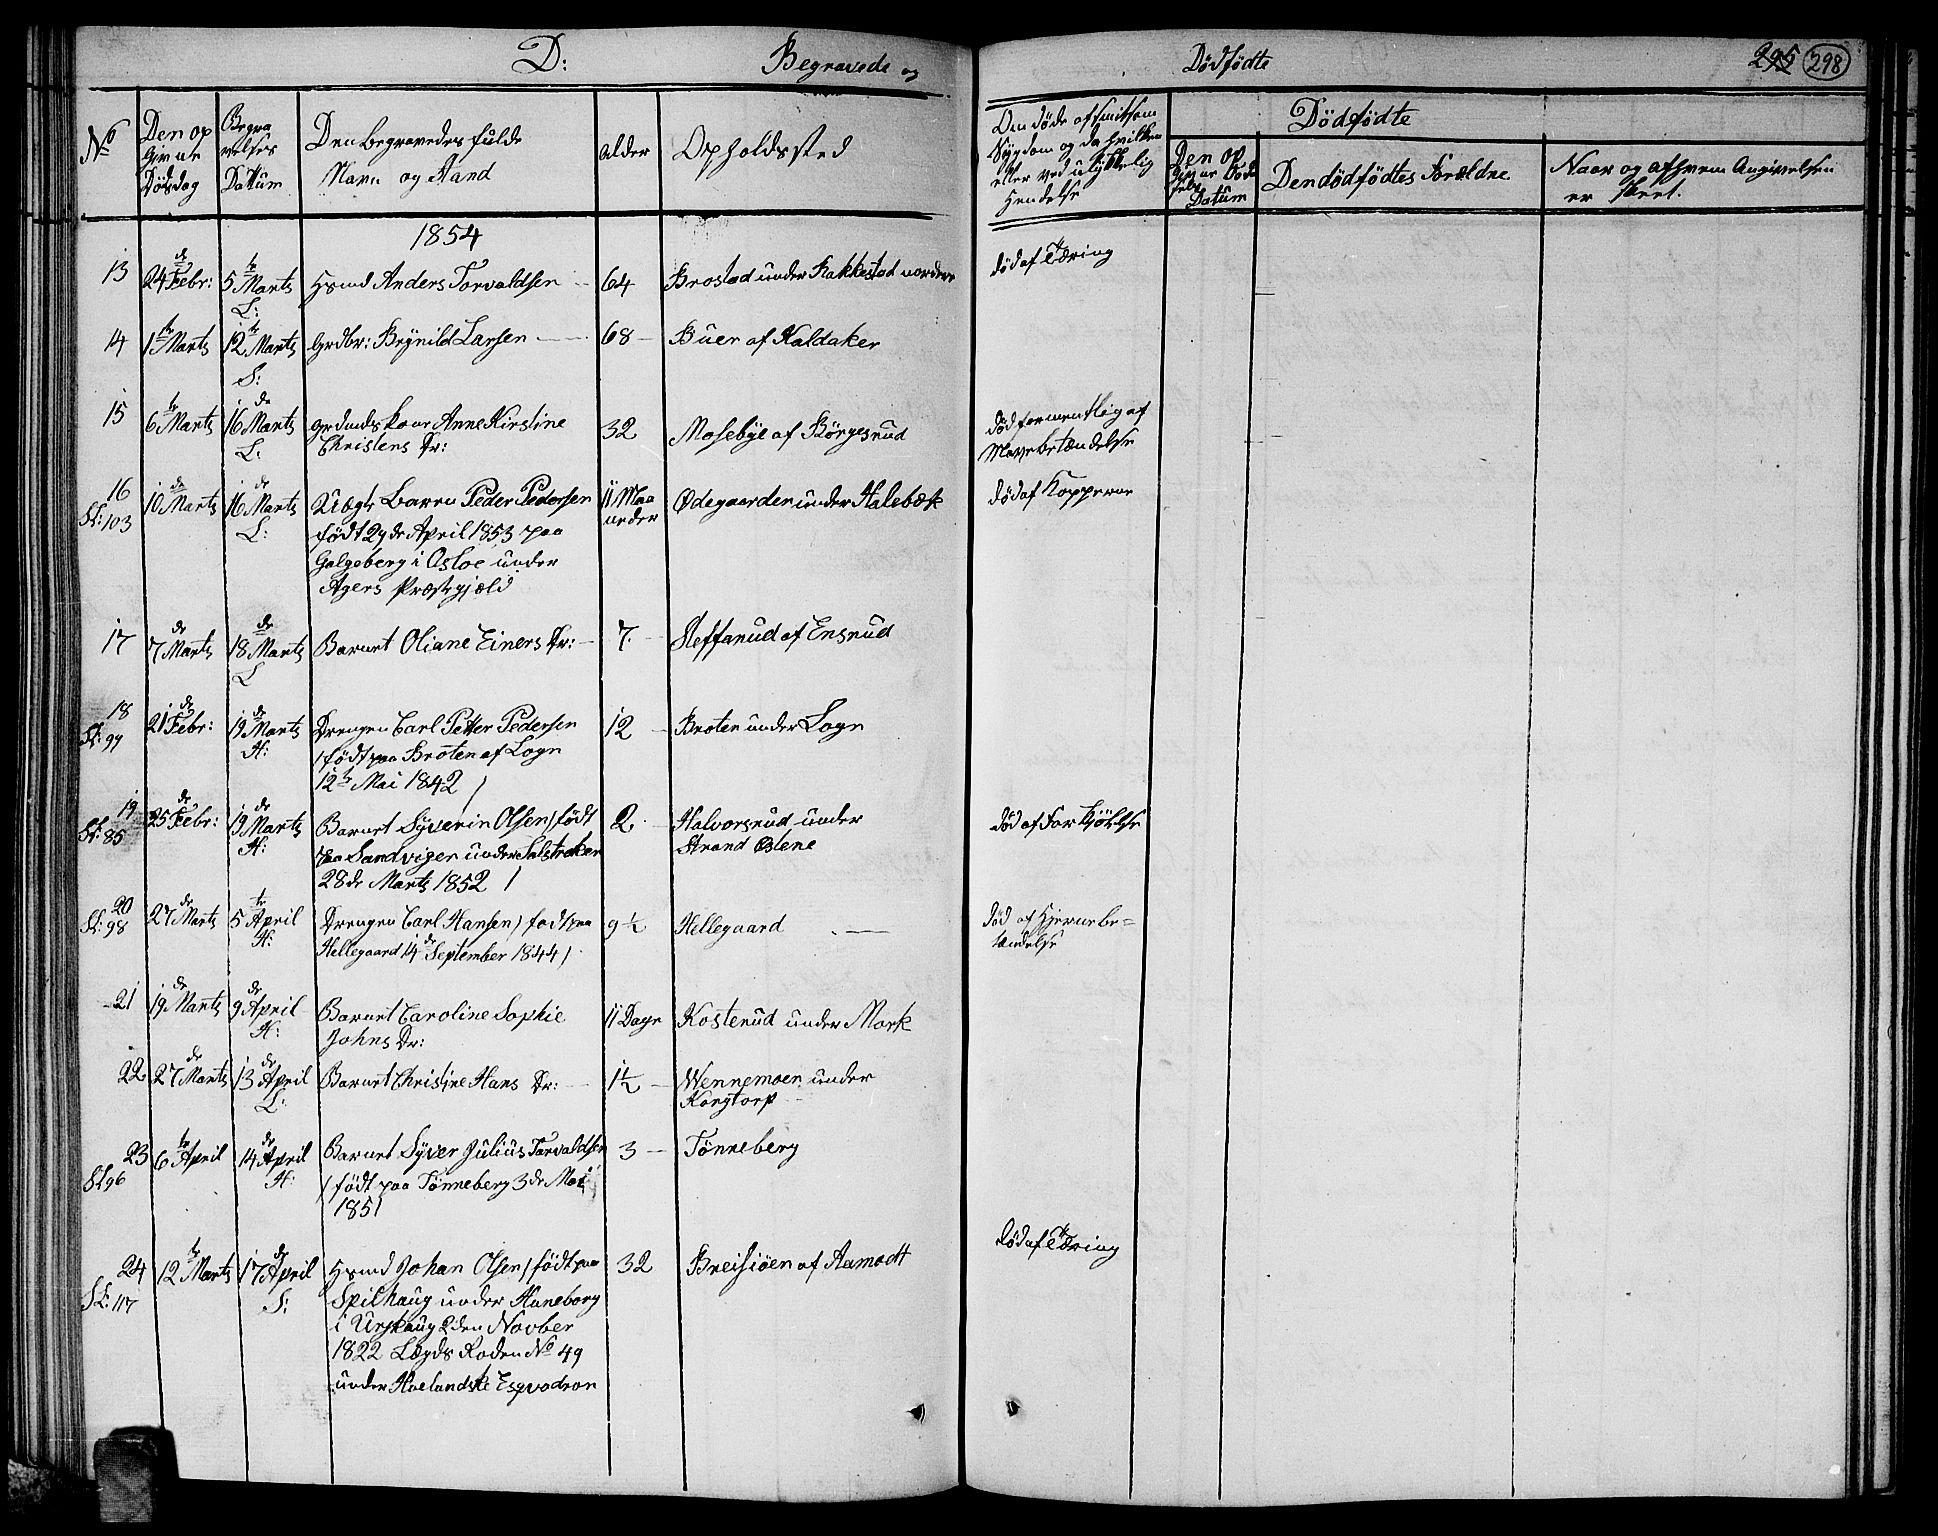 D: Begravede og
Dødfødte
295 298
No
Den op
givne
Dödsdag
Begra
velses
Datum
Den Begravedes fulde
Navn og Stand
alder
Opholdssted
Om døde af smitsom
Sygdom og da hvilken
eller ved ulykkelig
Hendelse
Dödfödte
Den op
givne Döds
føds
Datum
Den dödfödtes Forældre
Naar og af hvem Angivelsen
er skeet.
1854
13 24de Febr: 5te Marts Hsmd Anders Torvaldsen 64 Brostad under Rakkestad nordere død af Tæring
L:
14 1te Marts 12te Marts Grdbr: Brynild Larsen 68 Buer af Kaldaker
S:
15 6te Marts 16de Marts Grdmdskone Anne Kirstine 32 Mosebye af Börgesrud død formentlig af
L: Christens Dr: Mavebetændelse
16 10de Marts 16de Marts Uægte Barn Peder Pedersen 11 Maa Ødegaarden under Halebæk død af Kopperne
SL: 103 L: født 29de April 1853 paa neder
Galgeberg i Osloe under
Agers Præstegjæld
17 7de Marts 18de Marts Barnet Oliane Einers Dr: 7 Steffanrud af Ensrud
L
18 21de Febr: 19de Marts Drengen Carl Petter Pedersen 12 Broten under Logn
SL: 99 H: / født paa Bröten af Logn
12te Mai 1842 /
19 25de Febr: 19de Marts Barnet Syverin Olsen / født 2 Halvorsrud under død af Forkjölelse
SL: 85 H: paa Sandvigen under Salstraker Strand Østene
28de Marts 1852 /
20 27de Marts 5te April Drengen Carl Hansen / født paa 9 1/2 Hellegaard død af Hjernebe=
SL: 98 H: Hellegaard 14de September 1844 / tændelse
21 19de Marts 9de April Barnet Caroline Sophie 11 Dage Kosterud under Mork
H: Johns Dr:
22 27de Marts 13de April Barnet Christine Hans Dr: 1 1/2 Wennemoen under
L: Korgtorp
23 6te April 14de April Barnet Syver Julius Torvaldsen 3 Tönneberg
SL 96 H: / født paa Tönneberg 3de Mai
1851
24 12te Marts 17de April Hsmd Johan Olsen / født paa 32 Breisiöen af Aamodt død af Tæring
SL: 117 S: Spilhaug under Huneborg
i Urskaug 2den Novber
1822 Lægds Roden No 49
under Hoelandske Esqvadron